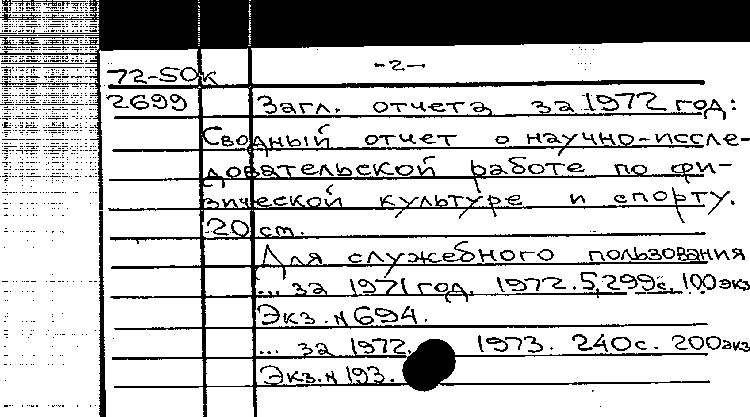 -2-
72-50к
2699 Загл. отчета за 1972 год:
Сводный отчет о научно-иссле-
довательской работе по фи-
зической культуре и спорту.
20 см.
Для служебного пользования
... за 1971 год. 1972. 5,299с. 100 экз
Экз. № 694.
... за 1972. 1973. 240с. 200 экз
Экз. № 193.